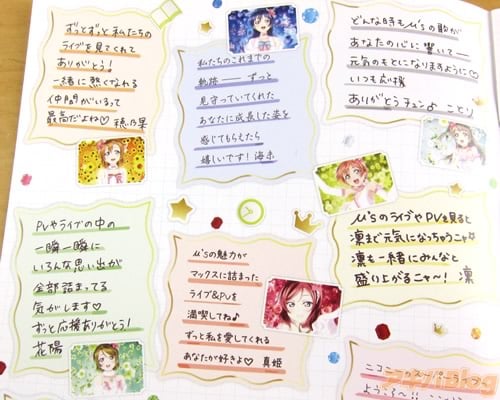 ずっとずっと私たちの
ライブを見てくれて
ありがとう!
一緒に熱くなれる
仲間がいるって
最高だよね♡ 穂乃果
私たちのこれまでの
軌跡── ずっと
見守っていてくれた
あなたに成長した姿を
感じてもらえたら
嬉しいです! 海未
どんな時もμ'sの歌が
あなたの心に響いて─
元気のもとになりますように♡
いつも応援
ありがとうチュン♪ ことり
PVやライブの中の
一瞬一瞬に
いろんな思い出が
全部詰まってる
気がします♡
ずっと応援ありがとう!
花陽
μ'sの魅力が
マックスに詰まった
ライブ&PVを
満喫してね♪
ずっと私を愛してくれる
あなたが好きよ♡ 真姫
μ'sのライブやPVを見ると
凛まで元気になっちゃうニャ☆
凛も一緒にみんなと
盛り上がるニャ〜! 凛
ニコニーのスーパー
ようこそ〜!!
アキバBlog